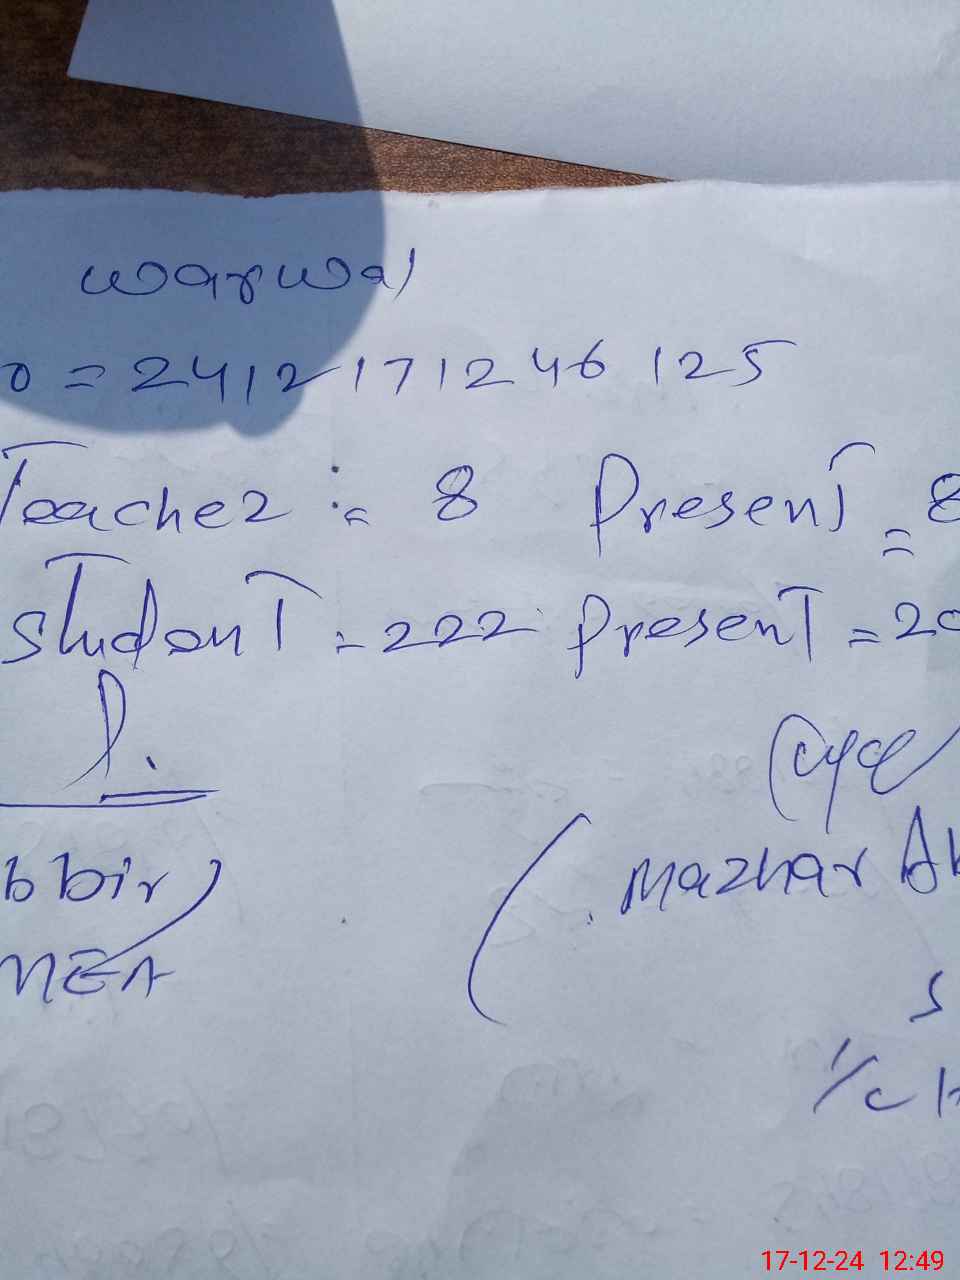 warwal
o = 2412171246125
Teacher := 8 Present = 8
Student = 222 Present = 20
bbir)
MEA
(Mazhar Ak
S
I/c H
17-12-24 12:49